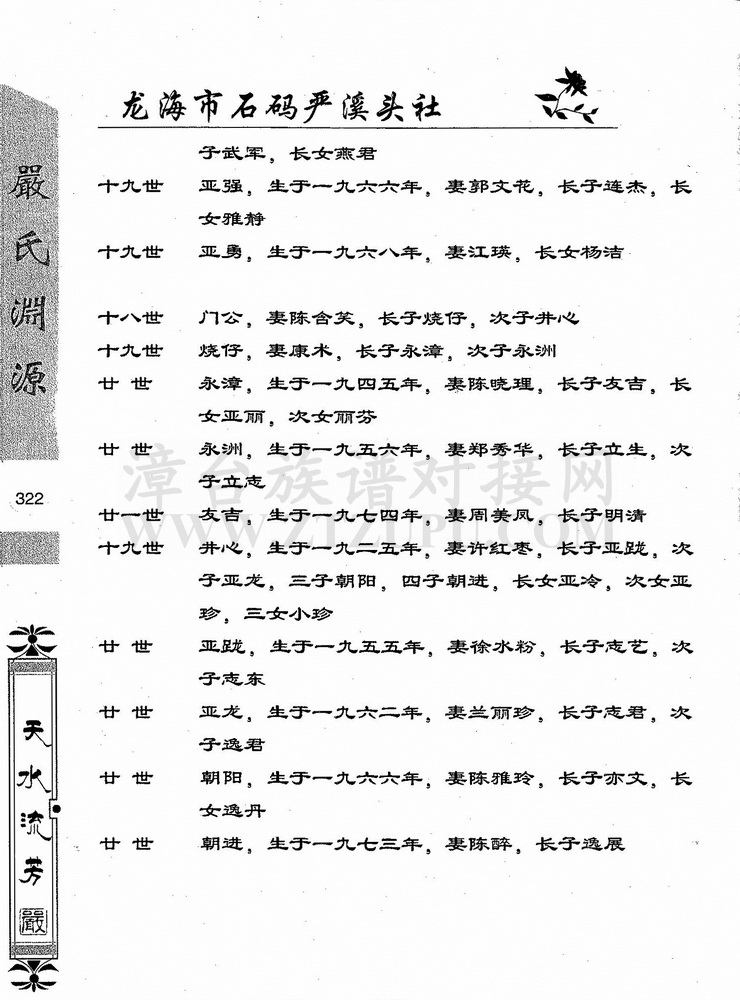 龙海市石码严溪头社
子武军，长女燕君
十九世 亚强，生于一九六六年，妻郭文花，长子连杰，长
女雅静
十九世 亚勇，生于一九六八年，妻江瑛，长女杨洁
十八世 门公，妻陈含笑，长子烧仔，次子井心
十九世 烧仔，妻康术，长子永漳，次子永洲
廿世 永漳，生于一九四五年，妻陈晓理，长子友吉，长
女亚丽，次女丽芬
廿世 永洲，生于一九五六年，妻郑秀华，长子立生，次
子立志
廿一世 友吉，生于一九七四年，妻周美凤，长子明清
十九世 井心，生于一九二五年，妻许红枣，长子亚跷，次
子亚龙，三子朝阳，四子朝进，长女亚冷，次女亚
珍，三女小珍
廿世 亚跷，生于一九五五年，妻徐水粉，长子志艺，次
子志东
廿世 亚龙，生于一九六二年，妻兰丽珍，长子志君，次
子逸君
廿世 朝阳，生于一九六六年，妻陈雅玲，长子亦文，长
女逸丹
廿世 朝进，生于一九七三年，妻陈醉，长子逸展
嚴氏淵源
322
天水流芳
嚴
漳台族谱对接网